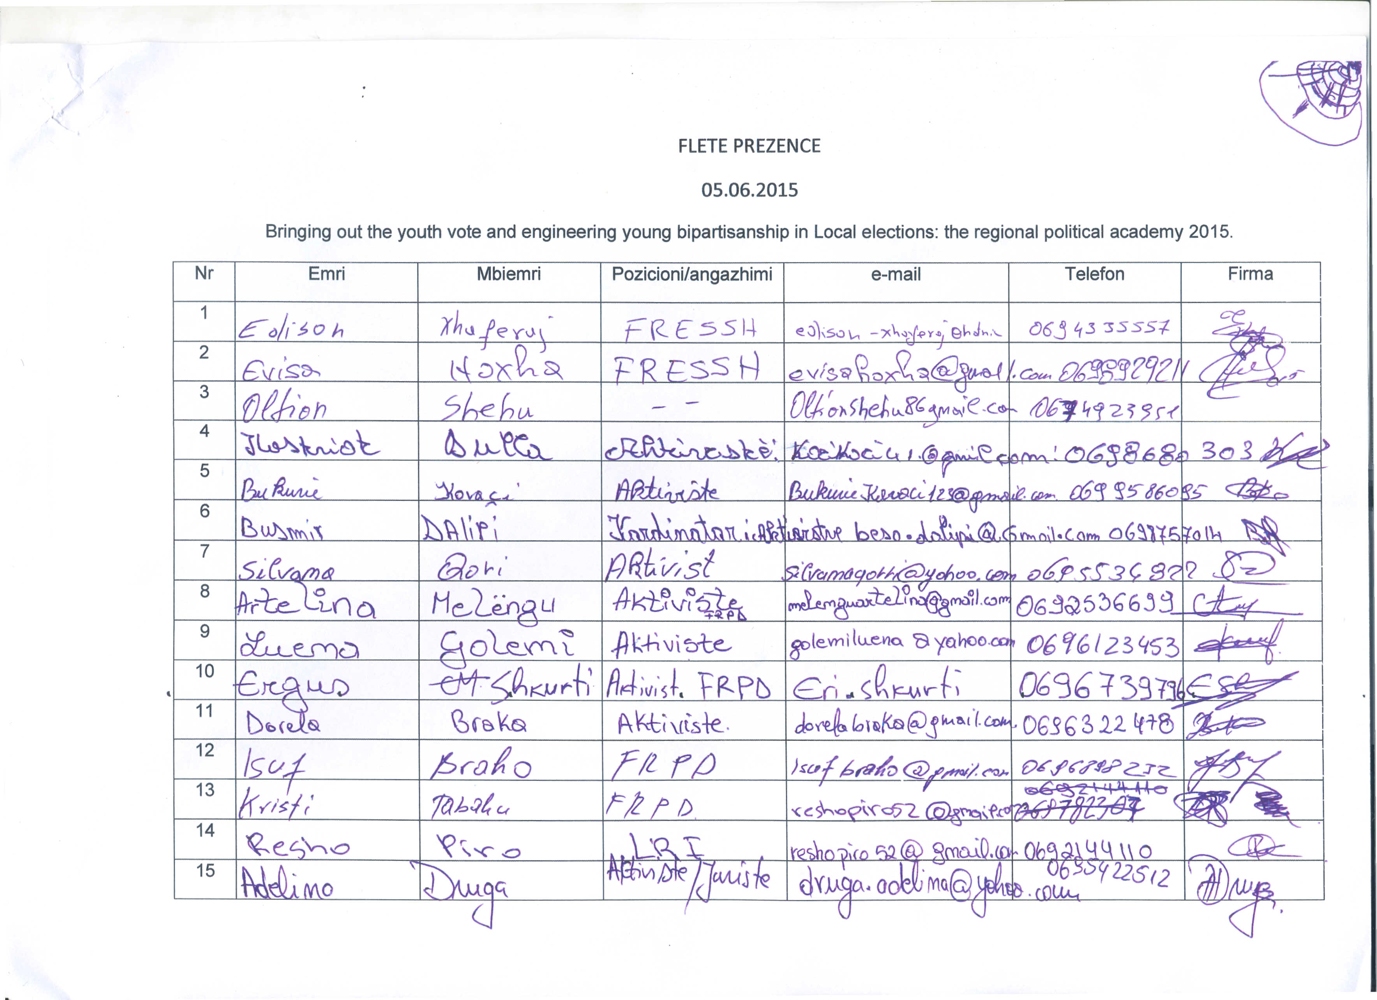 FLETE PREZENCE
05.06.2015
Bringing out the youth vote and engineering young bipartisanship in Local elections: the regional political academy 2015.
Nr Emri Mbiemri Pozicioni/angazhimi e-mail Telefon Firma
1 Edison Xhuferaj FRESSH 069 4335557
2 Evisa Hoxha FRESSH evisahoxha@gmail.com
3 Oltion Shehu - - Oltionshehu86gmail.com 0674923951
4 Dulla 303
5 Bukurie Kovaçi Aktiviste 0699586085
6 Busmir DAlipi beso.dalipi@gmail.com
7 Silvana Qori AKtivist
8 Artelina Melëngu Aktiviste FRPD melenguartelina@gmail.com 0692536699
9 Luena Golemi Aktiviste golemiluena@yahoo.com 0696123453
10 Ergus Shkurti Aktivist. FRPD Eri.shkurti 0696739796
11 Dorela Broka Aktiviste. dorelabroka@gmail.com 0696322478
12 Isuf Braho FRPD isufbraho@gmail.com 0696898232
13 Kristi Tabaku FRPD reshopiro52@gmail.com 0692144110
14 Resho Piro LRI reshopiro52@gmail.com 0692144110
15 Adelina Druga Aktiviste/Juriste druga.adelina@yahoo.com 0695422512